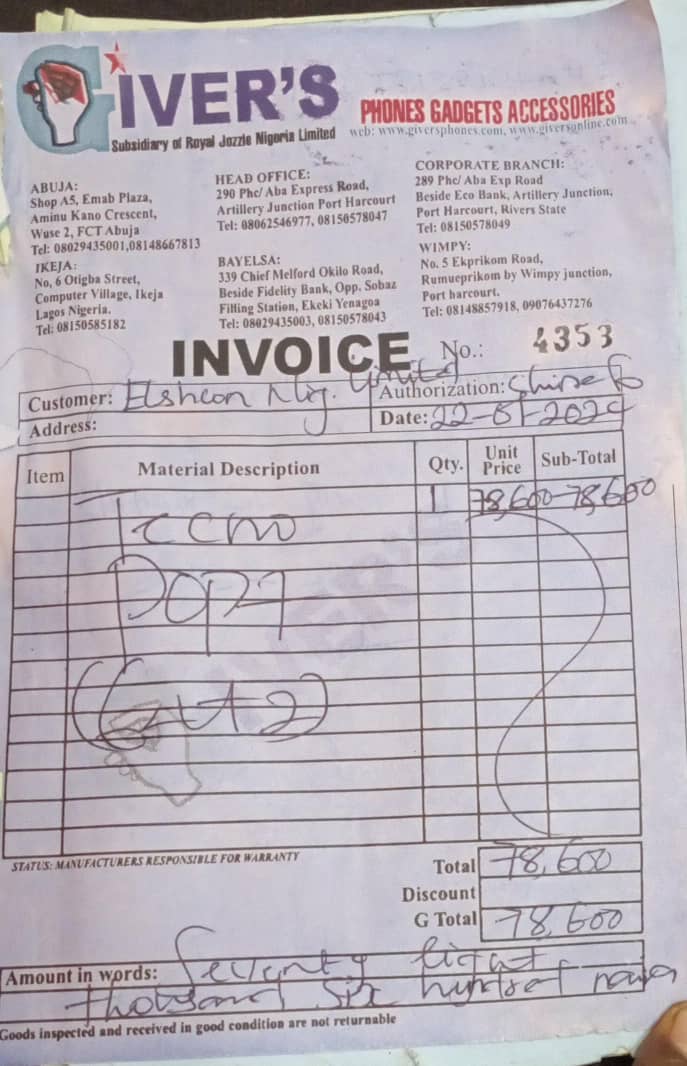 GIVER'S
PHONES GADGETS ACCESSORIES
Subsidiary of Royal Jozzle Nigeria Limited
web: www.giversphones.com, www.giversonline.com
ABUJA:
Shop A5, Emab Plaza,
Aminu Kano Crescent,
Wuse 2, FCT Abuja
Tel: 08029435001,08148667813
IKEJA:
No, 6 Otigba Street,
Computer Village, Ikeja
Lagos Nigeria.
Tel: 08150585182
HEAD OFFICE:
290 Phc/ Aba Express Road,
Artillery Junction Port Harcourt
Tel: 08062546977, 08150578047
BAYELSA:
339 Chief Melford Okilo Road,
Beside Fidelity Bank, Opp. Sobaz
Filling Station, Ekeki Yenagoa
Tel: 08029435003, 08150578043
CORPORATE BRANCH:
289 Phc/ Aba Exp Road
Beside Eco Bank, Artillery Junction,
Port Harcourt, Rivers State
Tel: 08150578049
WIMPY:
No. 5 Ekprikom Road,
Rumueprikom by Wimpy junction,
Port harcourt.
Tel: 08148857918, 09076437276
INVOICE No.: 4353
Customer: Elsheon Nig. Limited
Authorization:
Address:
Date: 22-01-2024
Item Material Description Qty. Unit Price Sub-Total
Tecno 1 78,600 78,600
Pop7
(64+2)
GIVER'S
STATUS: MANUFACTURERS RESPONSIBLE FOR WARRANTY
Total 78,600
Discount
G Total 78,600
Amount in words: Seventy Eight
thousand six hundred naira
Goods inspected and received in good condition are not returnable